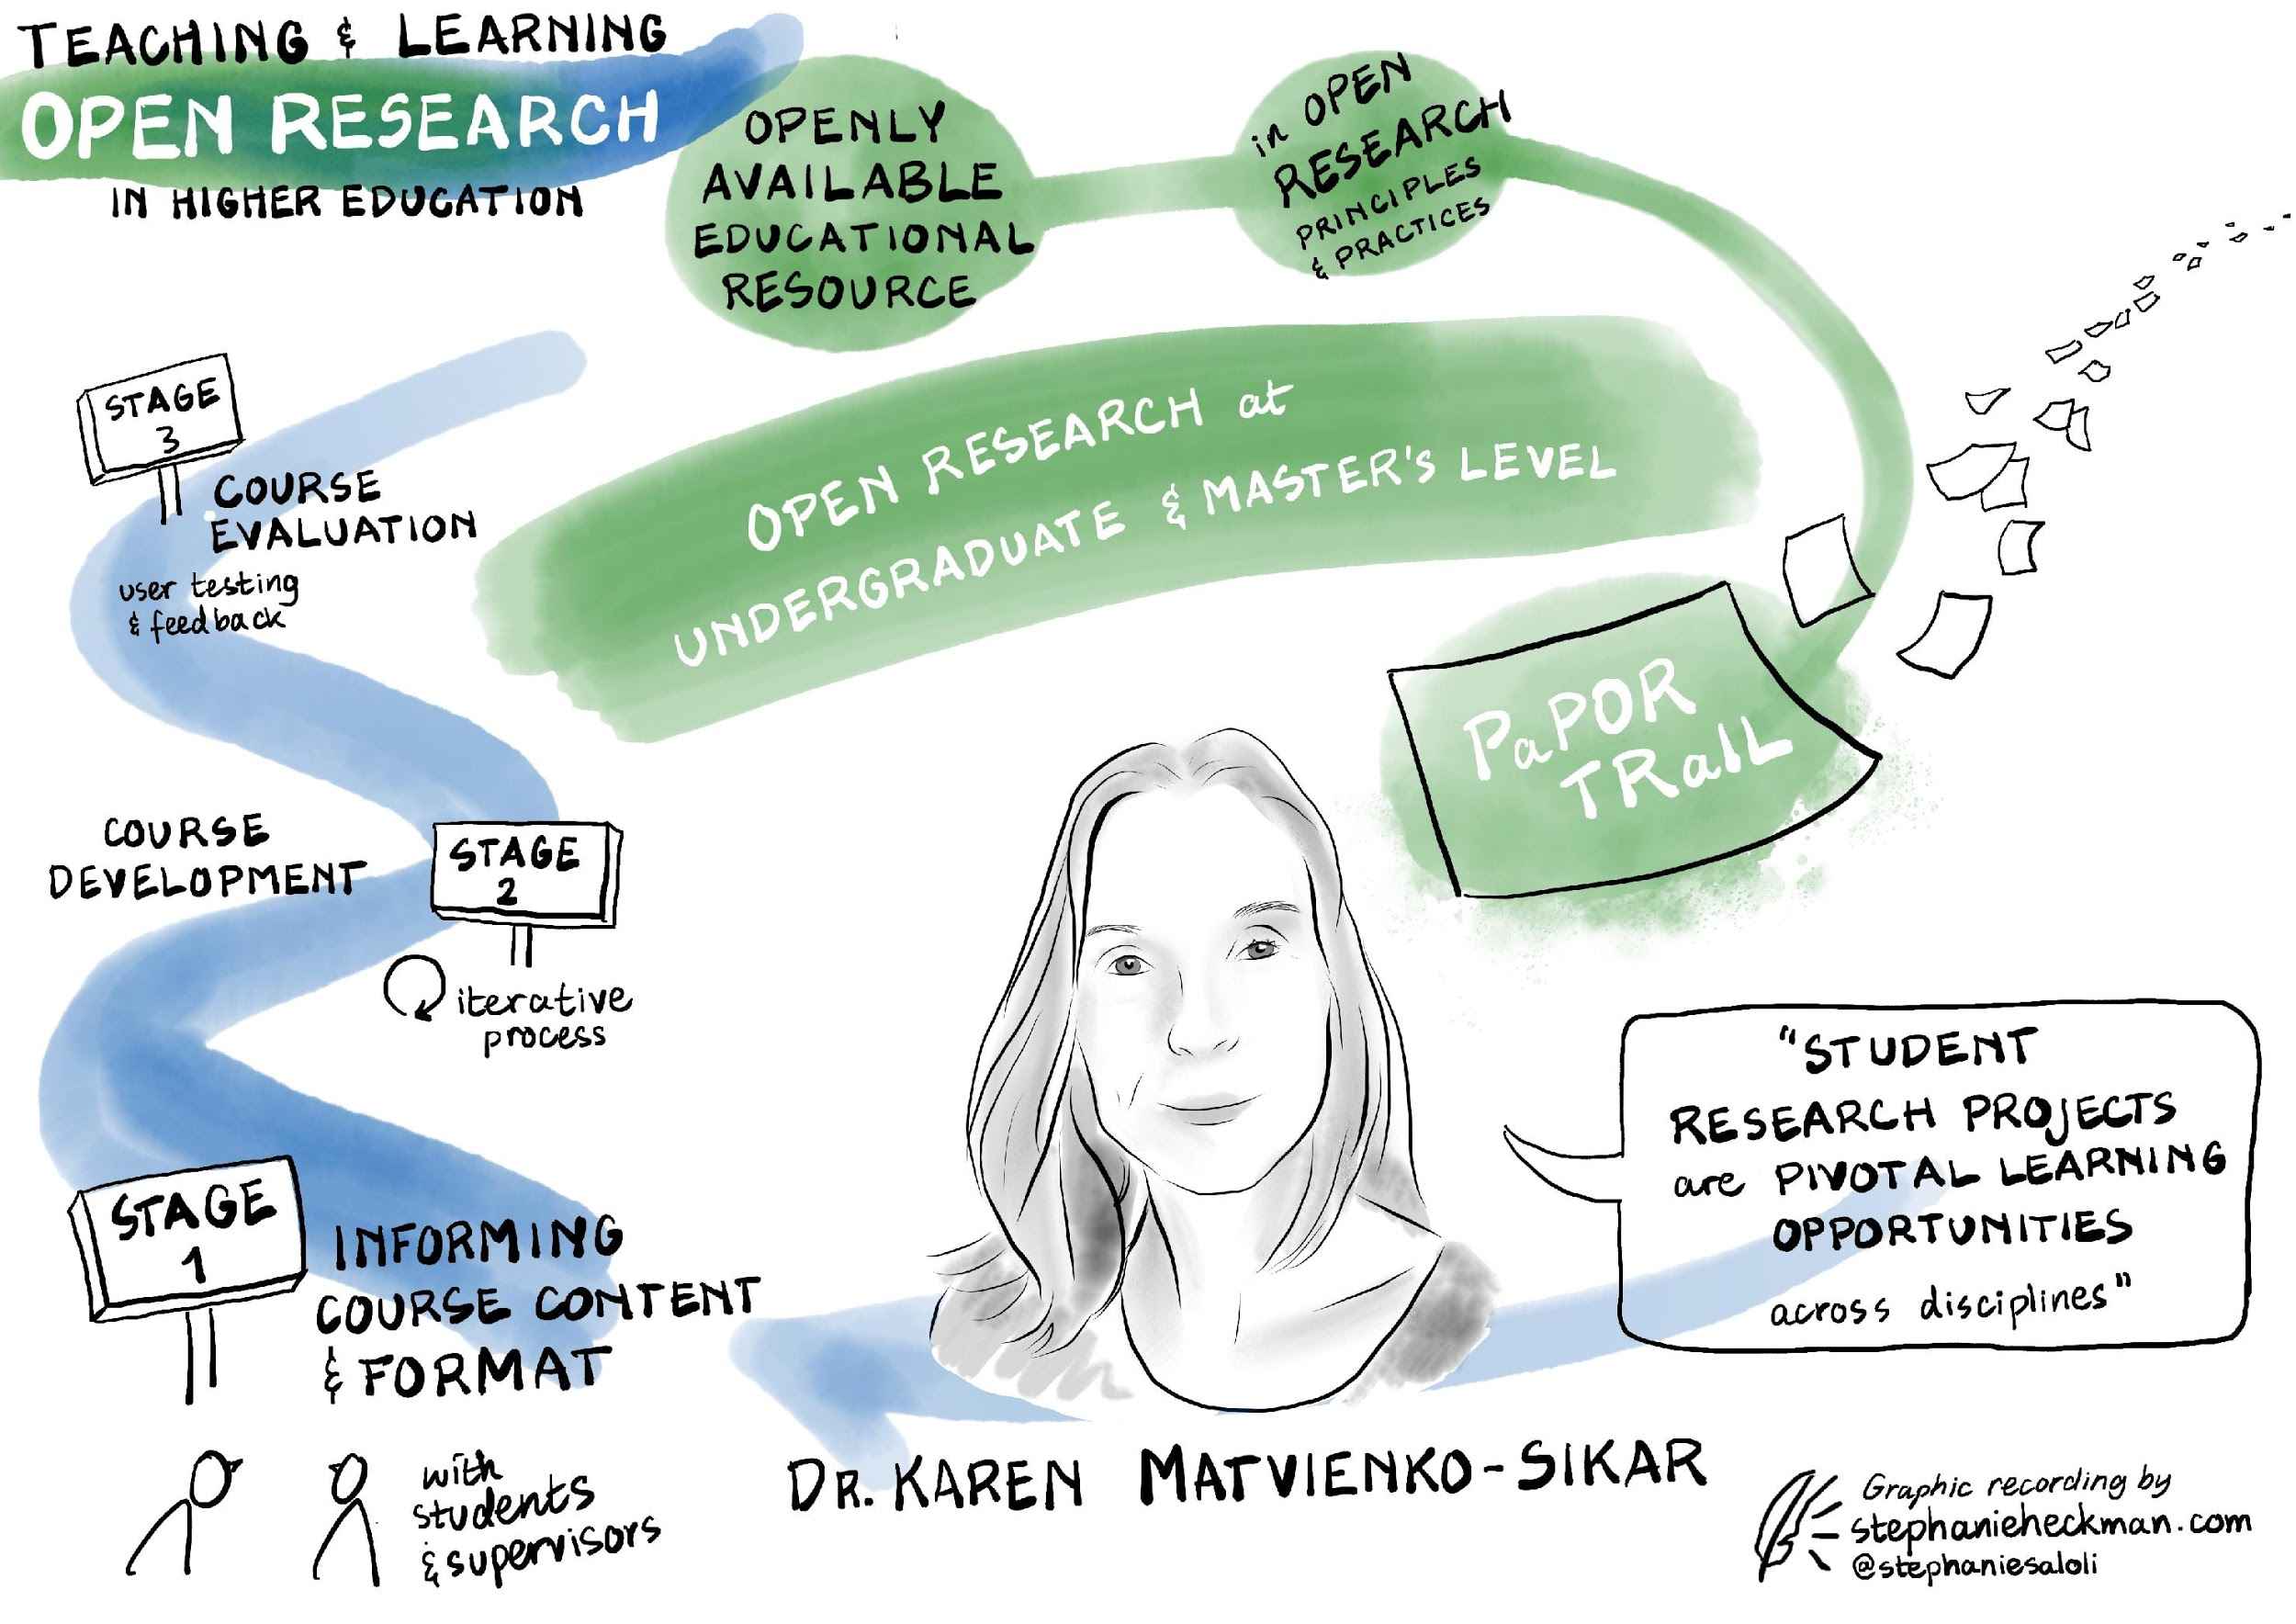 TEACHING & LEARNING
OPEN RESEARCH
IN HIGHER EDUCATION
OPENLY
AVAILABLE
EDUCATIONAL
RESOURCE
in OPEN
RESEARCH
PRINCIPLES
& PRACTICES
OPEN RESEARCH at
UNDERGRADUATE & MASTER'S LEVEL
PaPOR
TRaIL
STAGE
3
COURSE
EVALUATION
user testing
& feedback
COURSE
DEVELOPMENT
STAGE
2
iterative
process
STAGE
1
INFORMING
COURSE CONTENT
& FORMAT
with
students
& supervisors
"STUDENT
RESEARCH PROJECTS
are PIVOTAL LEARNING
OPPORTUNITIES
across disciplines"
DR. KAREN MATVIENKO-SIKAR
Graphic recording by
stephanieheckman.com
@stephaniesaloli